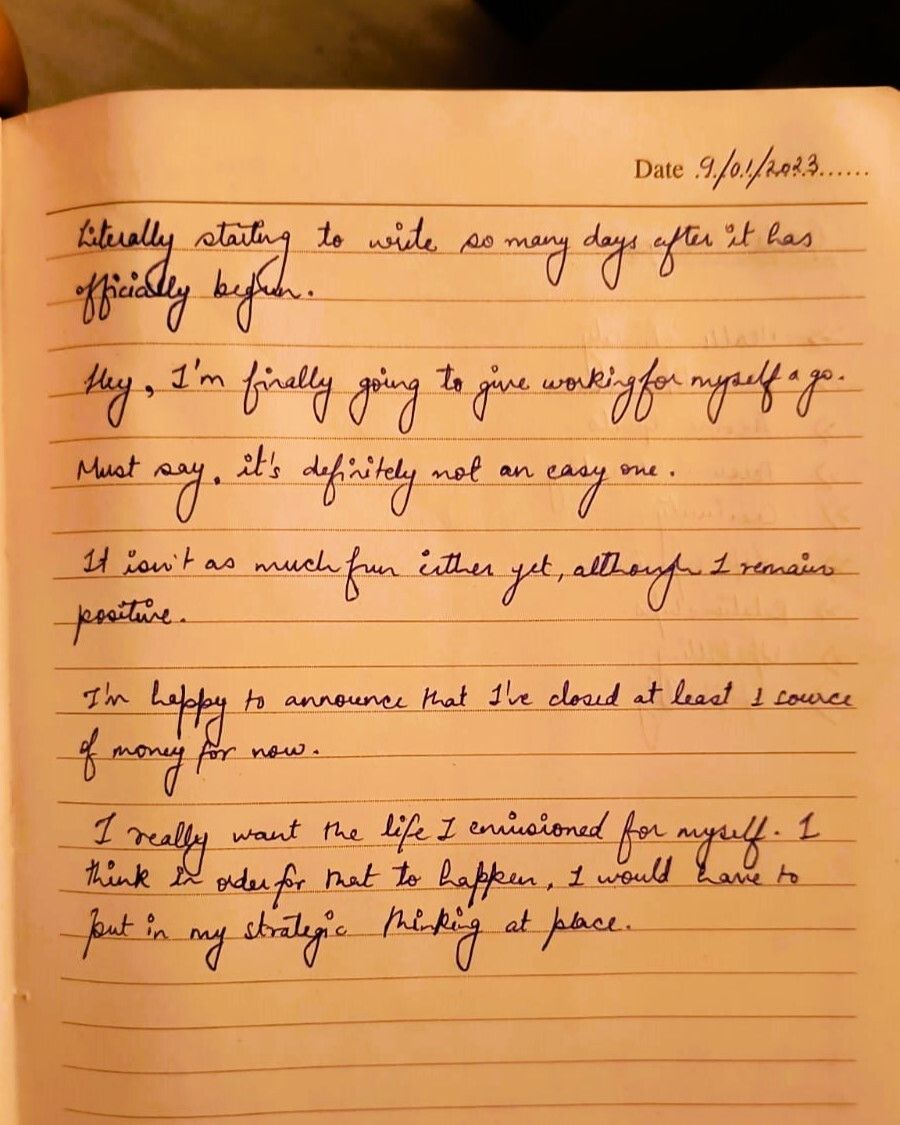 Date 9/01/2023......
Literally starting to write so many days after it has
officially begun.
Hey, I'm finally going to give working for myself a go.
Must say, it's definitely not an easy one.
It isn't as much fun either yet, although I remain
positive.
I'm happy to announce that I've closed at least 1 source
of money for now.
I really want the life I envisioned for myself. I
think in order for that to happen, I would have to
put in my strategic thinking at place.